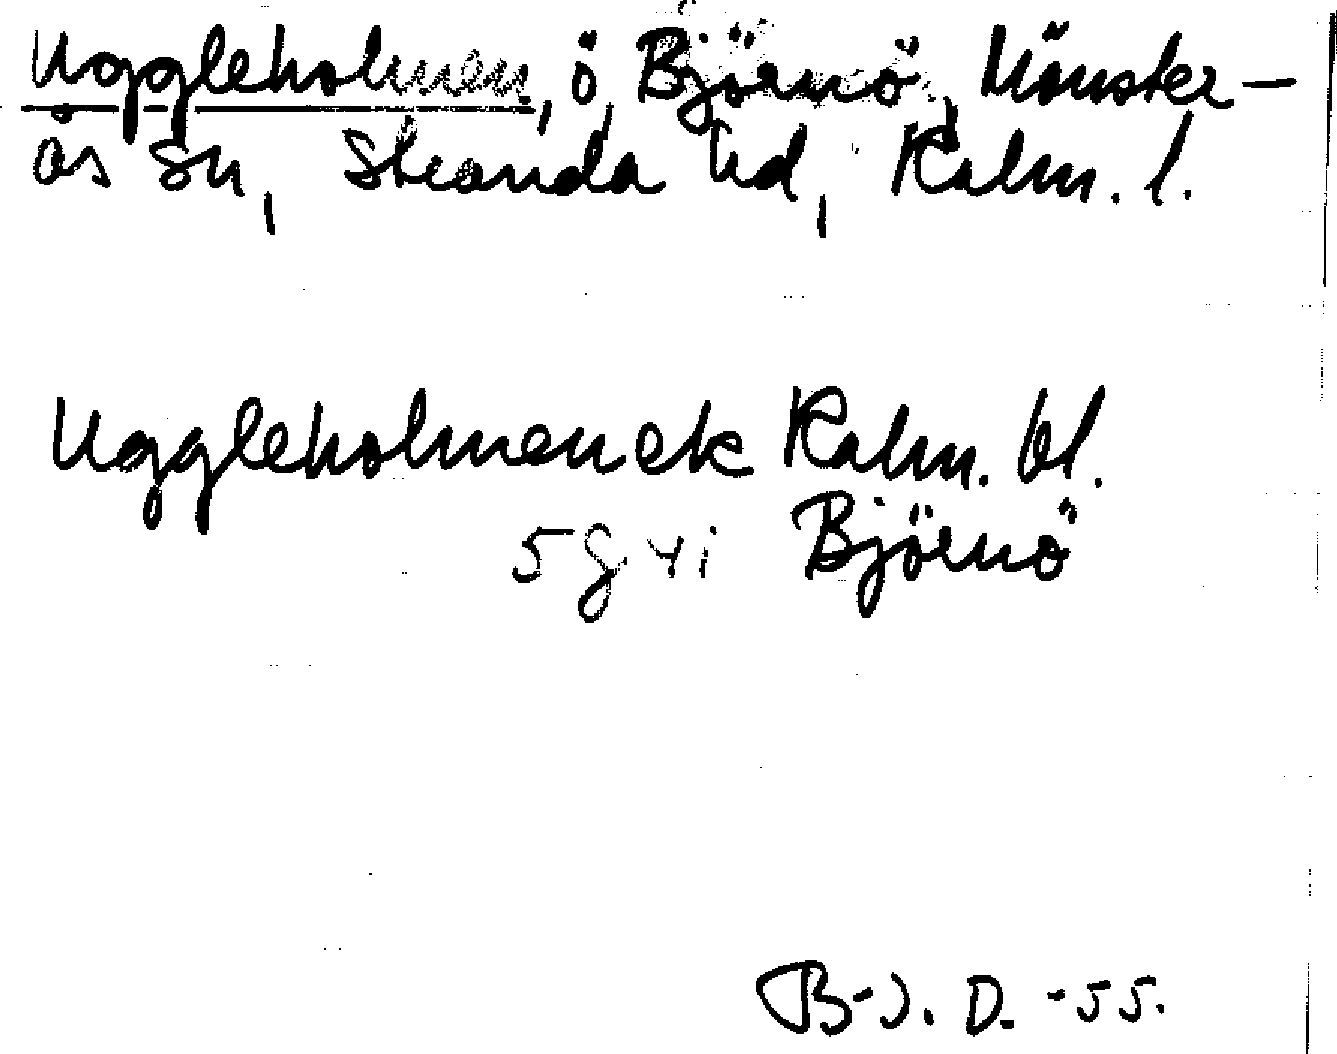 Uggleholmen, ö, Björnö, Mönster-
ås sn, Stranda hd, Kalm. l.
Uggleholmen ek Kalm. bl.
5g 4i Björnö
B-J. D. -55.